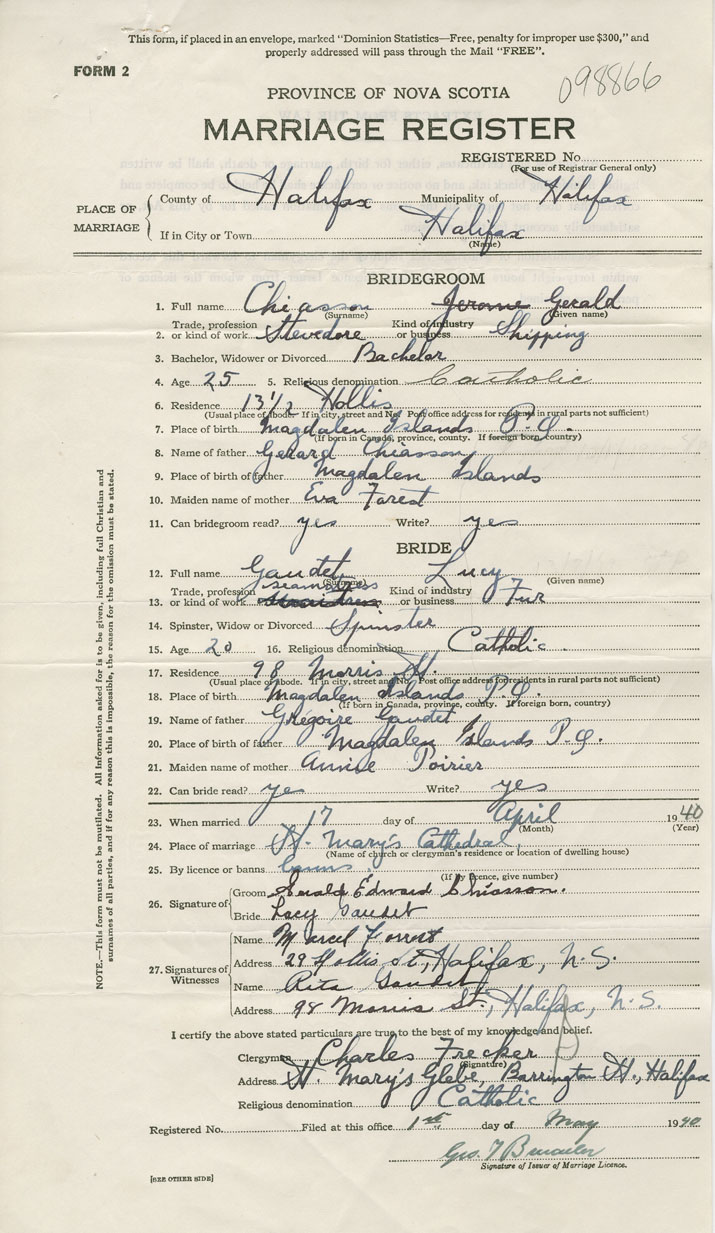 This form, if placed in an envelope, marked "Dominion Statistics—Free, penalty for improper use $300," and
properly addressed will pass through the Mail "FREE".
FORM 2
098866
PROVINCE OF NOVA SCOTIA
MARRIAGE REGISTER
REGISTERED No.
(For use of Registrar General only)
PLACE OF MARRIAGE
County of Halifax Municipality of Halifax
If in City or Town Halifax
(Name)
BRIDEGROOM
1. Full name Chiasson Jerome Gerald
(Surname) (Given name)
2. Trade, profession or kind of work Stevedore Kind of industry or business Shipping
3. Bachelor, Widower or Divorced Bachelor
4. Age 25 5. Religious denomination Catholic
6. Residence 13 1/2 Hollis
(Usual place of abode. If in city, street and No. Post office address for residents in rural parts not sufficient)
7. Place of birth Magdalen Islands P.Q.
(If born in Canada, province, county. If foreign born, country)
8. Name of father Gerard Chiasson
9. Place of birth of father Magdalen Islands
10. Maiden name of mother Eva Forest
11. Can bridegroom read? yes Write? yes
BRIDE
12. Full name Gaudet Lucy
(Surname) (Given name)
13. Trade, profession or kind of work seamstress Kind of industry or business Fur
14. Spinster, Widow or Divorced Spinster
15. Age 20 16. Religious denomination Catholic
17. Residence 98 Morris St.
(Usual place of abode. If in city, street and No. Post office address for residents in rural parts not sufficient)
18. Place of birth Magdalen Islands P.Q.
(If born in Canada, province, county. If foreign born, country)
19. Name of father Gregoire Gaudet
20. Place of birth of father Magdalen Islands P.Q.
21. Maiden name of mother Annie Poirier
22. Can bride read? yes Write? yes
23. When married 17 day of April 1940
(Month) (Year)
24. Place of marriage St. Mary's Cathedral
(Name of church or clergyman's residence or location of dwelling house)
25. By licence or banns banns
(If by licence, give number)
26. Signature of Groom Gerald Edward Chiasson.
Bride Lucy Gaudet
27. Signatures of Witnesses
Name Marcel Forrest
Address 29 Hollis St., Halifax, N.S.
Name Rita Gaudet
Address 98 Morris St., Halifax, N.S.
I certify the above stated particulars are true to the best of my knowledge and belief.
Clergyman Charles Frecker
(Signature)
Address St. Mary's Glebe, Barrington St., Halifax
Religious denomination Catholic
Registered No. Filed at this office 1st day of May 1940
Geo. T.
Signature of Issuer of Marriage Licence.
[SEE OTHER SIDE]
NOTE.—This form must not be mutilated. All information asked for is to be given, including full Christian and
surnames of all parties, and if for any reason this is impossible, the reason for the omission must be stated.